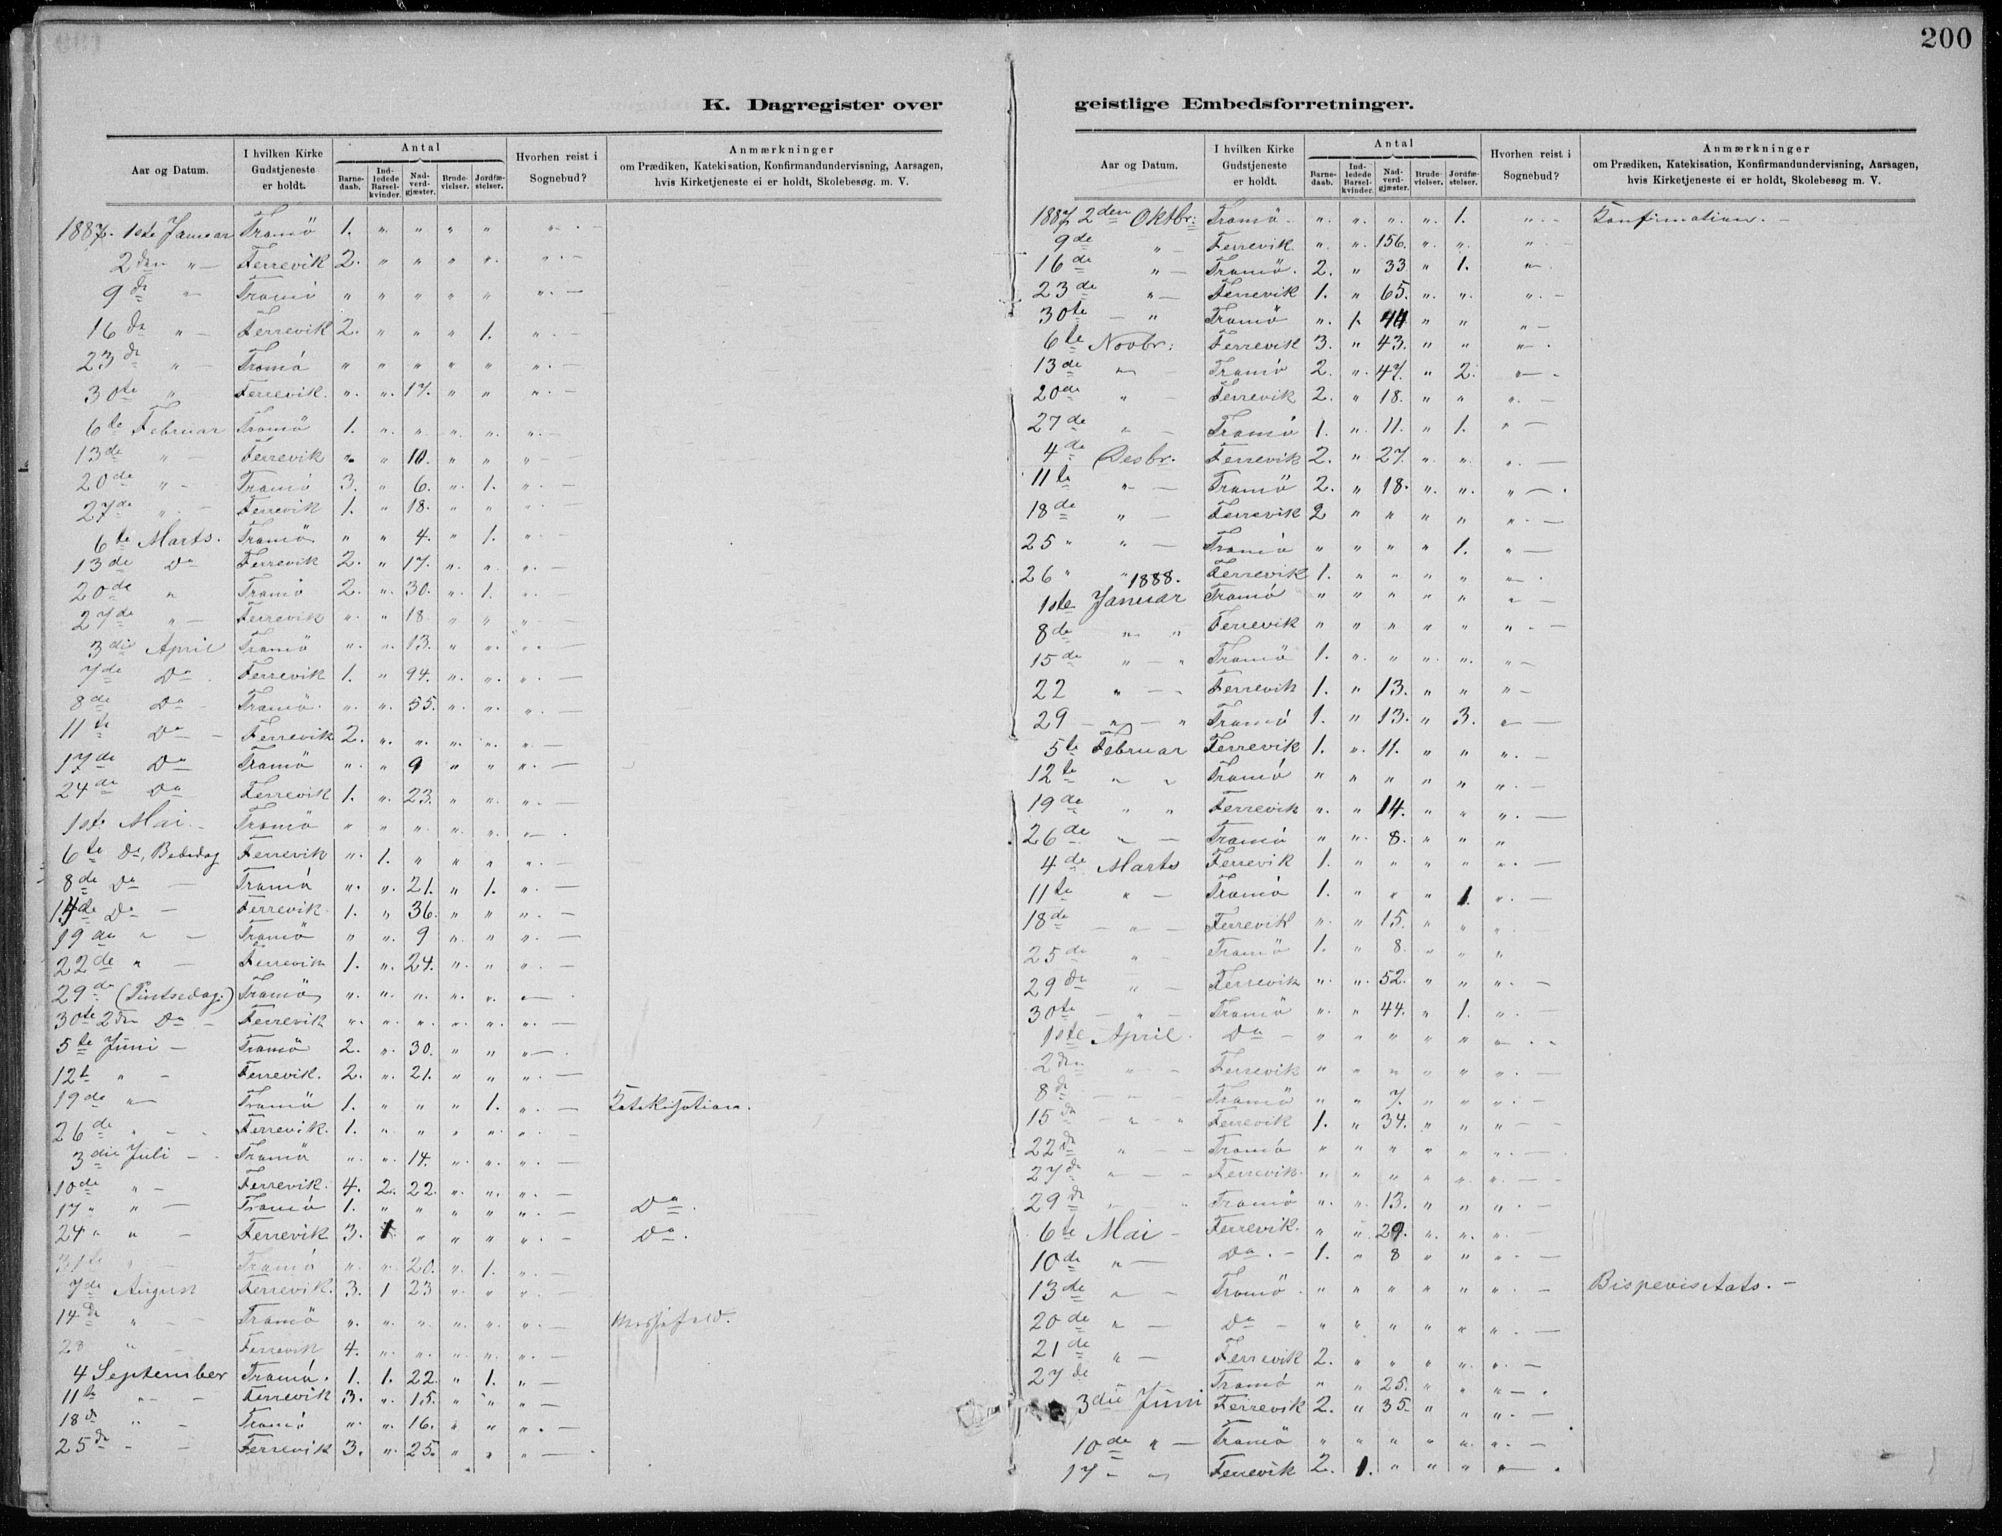 200
K. Dagregister over
Aar og Datum. I hvilken Kirke Gudstjeneste er holdt. Antal Barne-daab. Ind-ledede Barsel-kvinder. Nad-verd-gjæster. Brude-vielser. Jordfæ-stelser. Hvorhen reist i Sognebud? Anmærkninger om Prædiken, Katekisation, Konfirmandundervisning, Aarsagen, hvis Kirketjeneste ei er holdt, Skolebesøg. m. V.
1887. 1ste Januar Tromö 1. " " " " " —
2den " — Færevik 2. " " " " " —
9de " Tromö " " " " " " —
16de " — Færevik 2. " " " 1. " —
23de " — Tromö " " " " " " —
30te " Færevik. " " 17. " " " —
6te Februar Tromö 1. " " " " " —
13de " — Færevik " " 10. " " " —
20de " — Tromö 3. " 6. " 1. " —
27de " — Færevik 1. " 18. " " " —
6te Marts. Tromö " " 4. " 1. " —
13de Do Færevik 2. " 17. " " " —
20de " Tromö 2. " 30. " 1. " —
27de " — Færevik " " 18 " " " —
3die April Tromö " " 13. " " " —
7de Do Færevik 1. " 94. " " " —
8de Do Tromö " " 55. " " " —
11te Do — Færevik 2. " " " " " —
17de Do Tromö " " 9 " " " —
24de Do Færevik 1. " 23. " " " —
1ste Mai. Tromö " " " " " " —
6te Do, Bededag Færevik " 1. " " " " —
8de Do — Tromö " " 21. " 1. " —
14de Do — Færevik 1. " 36. " " " —
19de " — Tromö " " 9 " " " —
22de " — Færevik 1. " 24. " " " —
29de (Pintsedag.) Tromö " " " " " " —
30te 2den Do — Færevik " " " " " " —
5te Juni — Tromö 2. " 30. " " " —
12te " — Færevik. 2. " 21. " " " —
19de " — Tromö 1. " " " 1. " — Katekisation.
26de " — Færevik. 1. " " " " " —
3die Juli — Tromö " " 14. " " " —
10de " — Færevik. 4. 2. 22. " " " —
17 " " — Tromö 1. " " " " " — Do.
24 " " — Færevik 3. 1 " " " " — Do.
31te " — Tromö " " 20. " 1. " —
7de August Færevik. 3. 1 23 " " " —
14de " — Tromö " " " " " " — Messefald.
28 " — Færevik 4. " " " " " —
4 September Tromö. 1. 1. 22. " 1. " —
11te " — Færevik 3. " 15. " " " —
18de " — Tromö " " 16. " " " —
25de " — Færevik 3. " 25. " " " —
geistlige Embedsforretninger.
Aar og Datum. I hvilken Kirke Gudstjeneste er holdt. Antal Barne-daab. Ind-ledede Barsel-kvinder. Nad-verd-gjæster. Brude-vielser. Jordfæ-stelser. Hvorhen reist i Sognebud? Anmærkninger om Prædiken, Katekisation, Konfirmandundervisning, Aarsagen, hvis Kirketjeneste ei er holdt, Skolebesøg m. V.
1887 2den Oktbr: Tromö " " " " 1. " — Konfirmation. —
9de " — Færevik. " " 156. " " " —
16de " — Tromö. 2. " 33 " 1. " —
23de " — Færevik 1. " 65. " " " —
30te — " Tromö " 1. 44 " " " —
6te Novbr: Færevik 3. " 43. " " " —
13de " — Tromö 2. " 47. " 2. " —
20de " — Færevik 2. " 18. " " " —
27de " — Tromö 1. " 11. " 1. " —
4de Desbr. Færevik 2. " 27. " " " —
11te " — Tromö 2. " 18. " " " —
18de " — Færevik 2 " " " " " —
25 " " — Tromö " " " " 1. " —
26 " " Færevik 1. " " " " " —
1888.
1ste Januar Tromö " " " " " " —
8de " " Færevik " " " " " " —
15de " — " Tromö 1. " " " " " —
22 " — Færevik 1. " 13. " " " —
29 — " — " Tromö 1. " 13. " 3. " —
5te Februar Færevik 1. " 11. " " " —
12te " " Tromö " " " " " " —
19de " " Færevik " " 14. " " " —
26de " — Tromö " " 8. " " "
4de Marts Færevik 1. " " " " " —
11te " — Tromö 1. " " " 1. " —
18de — " — Færevik " " 15. " " " —
25de " — Tromö 1. " 8. " " "
29de " — Færevik " " 52. " " " —
30te — " — Tromö " " 44. " 1. " —
1ste April. Do — " " " " " "
2den " — Færevik " " " " " " —
8de — " — Tromö " " 7. " " " —
15de — " " Færevik 1. " 34. " " " —
22de " — Tromö " " " " " " —
27de " — Færevik " " " " " " —
29de " " Tromö " " 13. " " " —
6te Mai — Færevik. " " 29. " " " —
10de " — Do. — 1. " 8 " " " —
13de " — Tromö " " " " " " — Bispevisitats. —
20de " — Do — " " " " " " —
21de " — Færevik 2. " " " " " —
27de Tromö " " 25. " " " —
3die Juni Færevik 2. " 35. " " " —
10de " — Tromö " " " " " " —
17 " " Færevik 2. 1. " " " " —